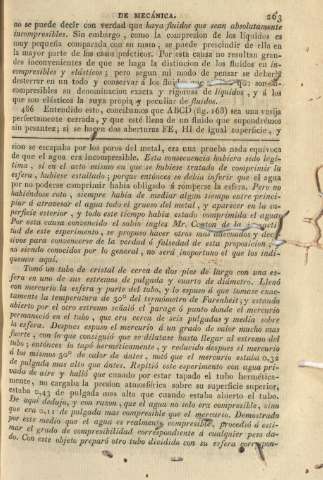 DE MECÁNICA. 263
no se puede decir con verdad que haya fluidos que sean absolutamente
incompresibles. Sin embargo, como la compresion de los líquidos es
muy pequeña comparada con su masa, se puede prescindir de ella en
la mayor parte de los casos prácticos. Por esta causa no resultan gran-
des inconvenientes de que se haga la distincion de los fluidos en in-
compresibles y elásticos; pero segun mi modo de pensar se deberá
desterrar en un todo y conservar á los que son in-
compresibles su denominacion exacta y rigurosa de líquidos, y á los
que son elásticos la suya propia y peculiar de fluidos.
486 Entendido esto, concibamos que ABCD (fig. 168) sea una vasija
perfectamente cerrada, y que esté llena de un fluido que supondrémos
sin pesantez; si se hacen dos aberturas FE, HI de igual superficie, y
sion se escapaba por los poros del metal, era una prueba nada equívoca
de que el agua era incompresible. Esta consecuencia hubiera sido legí-
tima, si en el acto mismo en que se hubiese tratado de comprimir la
esfera, hubiese estallado; porque entonces se debía inferir que el agua
por no poderse comprimir habia obligado á romperse la esfera. Pero no
habiéndose esto, siempre habia de mediar algun tiempo entre princi-
piar á atravesar el agua todo el grueso del metal, y aparecer en la su-
perficie exterior, y todo este tiempo habia estado comprimida el agua.
Por esta causa convencido el sabio ingles Mr. Canton de la
tud de este experimento, se propuso hacer otros mas adecuados y deci-
sivos para convencerse de la verdad ó falsedad de esta proposicion;
no siendo conocidos por lo general, no será inoportuno el que los indi-
quemos aquí.
Tomó un tubo de cristal de cerca de dos pies de largo con una es-
fera en uno de sus extremos de pulgada y cuarto de diámetro. Llenó
con mercurio la esfera y parte del tubo, y lo espuso á que tomare exac-
tamente la temperatura de 50° del termómetro de Farenheit; y estando
abierto por el otro extremo señaló el parage ó punto donde el mercurio
permaneció en el tubo, que era cerca de seis pulgadas y media sobre
la esfera. Despues espuso el mercurio á un grado de calor mucho mas
fuerte, con lo que consiguió que se dilatase hasta llegar al extremo del
tubo; entónces lo tapó herméticamente, y reducido despues el mercurio
á los mismos 50° de calor de ántes, notó que el mercurio estaba 0,32
de pulgada mas alto que ántes. Repitió este experimento con agua pri-
vada de ayre y halló que cuando por estar tapado el tubo hermética-
mente, no cargaba la presion atmosférica sobre su superficie superior,
estaba 0,43 de pulgada mas alta que cuando estaba abierto el tubo.
De aquí dedujo, y con razon, que el agua no solo era compresible, sino
que era 0,11 de pulgada mas compresible que el mercurio. Demostrado
por este medio que el agua es realmente compresible, procedió á esti-
mar el grado de compresibilidad correspondiente á cualquier peso da-
do. Con este objeto preparó otro tubo dividido con su esfera correspon-